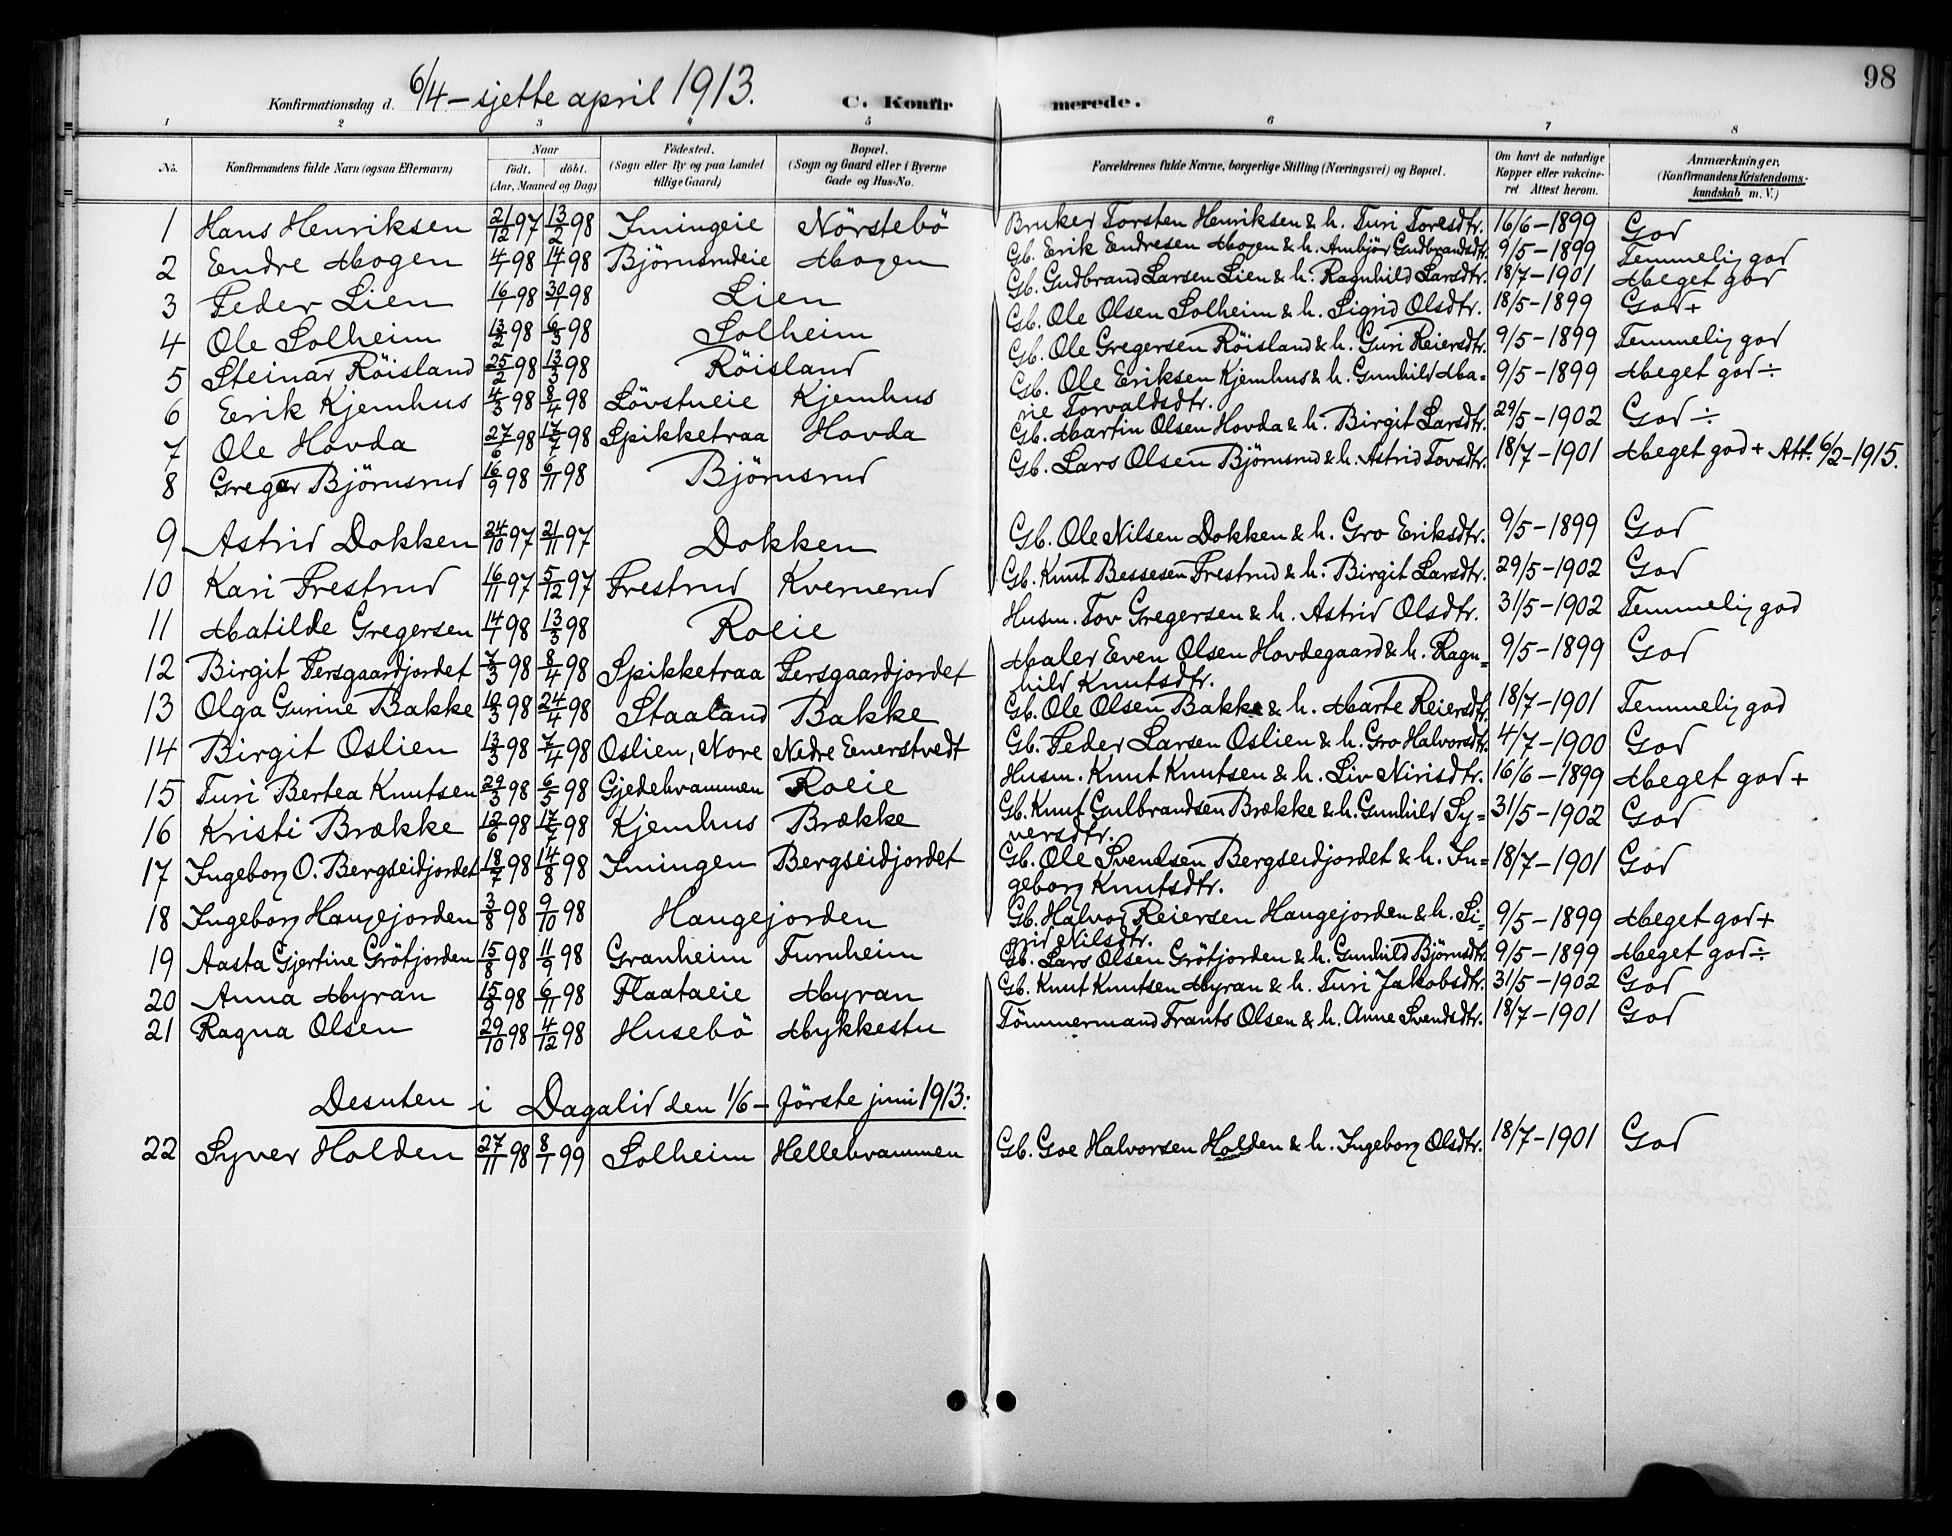 98
Konfirmationsdag d. 6/4 – sjette april 1913. C. Konfirmerede.
1 2 3 4 5 6 7 8
No. Konfirmandens fulde Navn (ogsaa Efternavn) Naar födt. döbt. (Aar, Maaned og Dag) Födested. (Sogn eller By og paa Landet tillige Gaard) Bopæl. (Sogn og Gaard eller i Byerne Gade og Hus-No. Forældrenes fulde Navne, borgerlige Stilling (Næringsvei) og Bopæl. Om havt de naturlige Kopper eller vaccineret. Attest herom. Anmærkninger. (Konfirmandens Kristendomskundskab m. V.)
1 Hans Henriksen 21/12 97 13/2 98 Imingeie Nörstebö Bruker Torsten Henriksen & h. Turi Toresdtr. 16/6 – 1899 God
2 Endre Mogen 4/1 98 14/ 98 Björnsrudeie Mogen Gb. Erik Endresen Mogen & h. Ambjör Gudbrandsdtr. 9/5 – 1899 Temmelig god
3 Peder Lien 16/1 98 30/ 98 Lien Gb. Gudbrand Larsen Lien & h. Ragnhild Larsdtr. 18/7 – 1901 Meget god
4 Ole Solheim 13/2 98 6/3 98 Solheim Gb. Ole Olsen Solheim & h. Sigrid Olsdtr. 18/5 – 1899 God +
5 Steinar Röisland 25/2 98 13/3 98 Röisland Gb. Ole Gregersen Röisland & h. Guri Reiersdtr. 9/5 – 1899 Temmelig god
6 Erik Kjemhus 4/3 98 8/4 98 Lövstueie Kjemhus Gb. Ole Eriksen Kjemhus & h. Gunhild Marie Torvaldsdtr. 9/5 – 1899 Meget god ÷
7 Ole Hovda 27/6 98 17/7 98 Spikketraa Hovda Gb. Martin Olsen Hovda & h. Birgit Larsdtr. 29/5 – 1902 God ÷
8 Gregar Björnsrud 16/9 98 6/11 98 Björnsrud Gb. Lars Olsen Björnsrud & h. Astrid Tovsdtr. 18/7 – 1901 Meget god + Att. 6/2 – 1915.
9 Astrid Dokken 24/10 97 21/11 97 Dokken Gb. Ole Nilsen Dokken & h. Gro Eriksdtr. 9/5 – 1899 God
10 Kari Frestrud 16/11 97 5/12 97 Frestrud Kvernerud Gb. Knut Bessesen Frestrud & h. Birgit Larsdtr. 29/5 – 1902 God
11 Matilde Gregersen 14/1 98 13/3 98 Roeie Husm. Tov Gregersen & h. Astrid Olsdtr. 31/5 – 1902 Temmelig god
12 Birgit Persgaardjordet 7/3 98 8/4 98 Spikketraa Persgaardjordet Maler Even Olsen Hovdegaard & h. Ragnhild Knutsdtr. 9/5 – 1899 God
13 Olga Gurine Bakke 10/3 98 24/4 98 Staaland Bakke Gb. Ole Olsen Bakke & h. Marte Reiersdtr. 18/7 – 1901 Temmelig god
14 Birgit Oslien 13/3 98 7/4 98 Oslien, Nore Nedre Enerstvedt Gb. Peder Larsen Oslien & h. Gro Halvorsdtr. 4/7 – 1900 God
15 Turi Bertea Knutsen 29/3 98 6/5 98 Gjedehvammen Roeie Husm. Knut Knutsen & h. Liv Nirisdtr. 16/6 – 1899 Meget god +
16 Kristi Brække 12/6 98 17/7 98 Kjemhus Brække Gb. Knut Gulbrandsen Brække & h. Gunhild Syversdtr. 31/5 – 1902 God
17 Ingeborg O. Bergseidjordet 18/7 98 14/8 98 Imingen Bergseidjordet Gb. Ole Svendsen Bergseidjordet & h. Ingeborg Knutsdtr. 18/7 – 1901 God
18 Ingeborg Haugejorden 3/8 98 9/10 98 Haugejorden Gb. Halvor Reiersen Haugejorden & h. Sigrid Nilsdtr. 9/5 – 1899 Meget god +
19 Aasta Gjertine Grötjorden 15/8 98 11/9 98 Granheim Furuheim Gb. Lars Olsen Grötjorden & h. Gunhild Björnsdtr. 9/5 – 1899 Meget god ÷
20 Anna Myran 15/9 98 6/11 98 Flaataeie Myran Gb. Knut Knutsen Myran & h. Turi Jakobsdtr. 31/5 – 1902 God
21 Ragna Olsen 29/10 98 4/12 98 Husebö Mykkestu Tömmermand Frants Olsen & h. Anne Svendsdtr. 18/7 – 1901 God
Desuten i Dagalid den 1/6 – förste juni 1913:
22 Syver Holden 27/11 98 8/1 99 Solheim Hellehvammen Gb. Goe Halvorsen Holden & h. Ingeborg Olsdtr. 18/7 – 1901 God